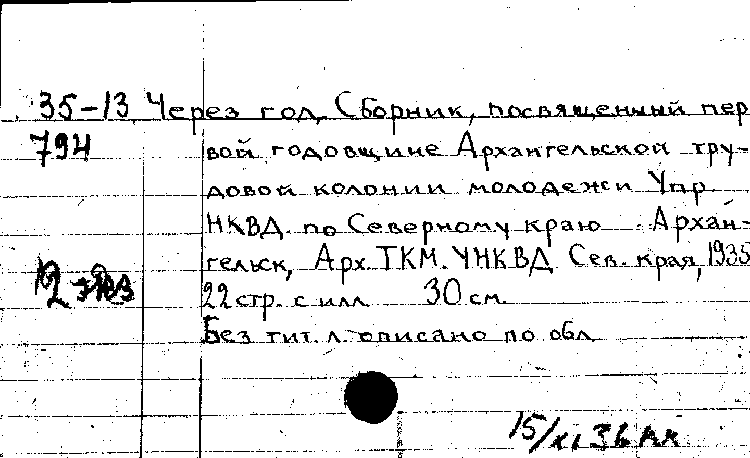 35-13 Через год. Сборник, посвященный пер
794 вой годовщине Архангельской тру-
довой колонии молодежи Упр.
НКВД. по Северному краю. Архан-
гельск, Арх. ТКМ. УНКВД Сев. края, 1935
22 стр. с илл. 30 см.
2 экз
Без тит. л. описано по обл.
15/XI 36